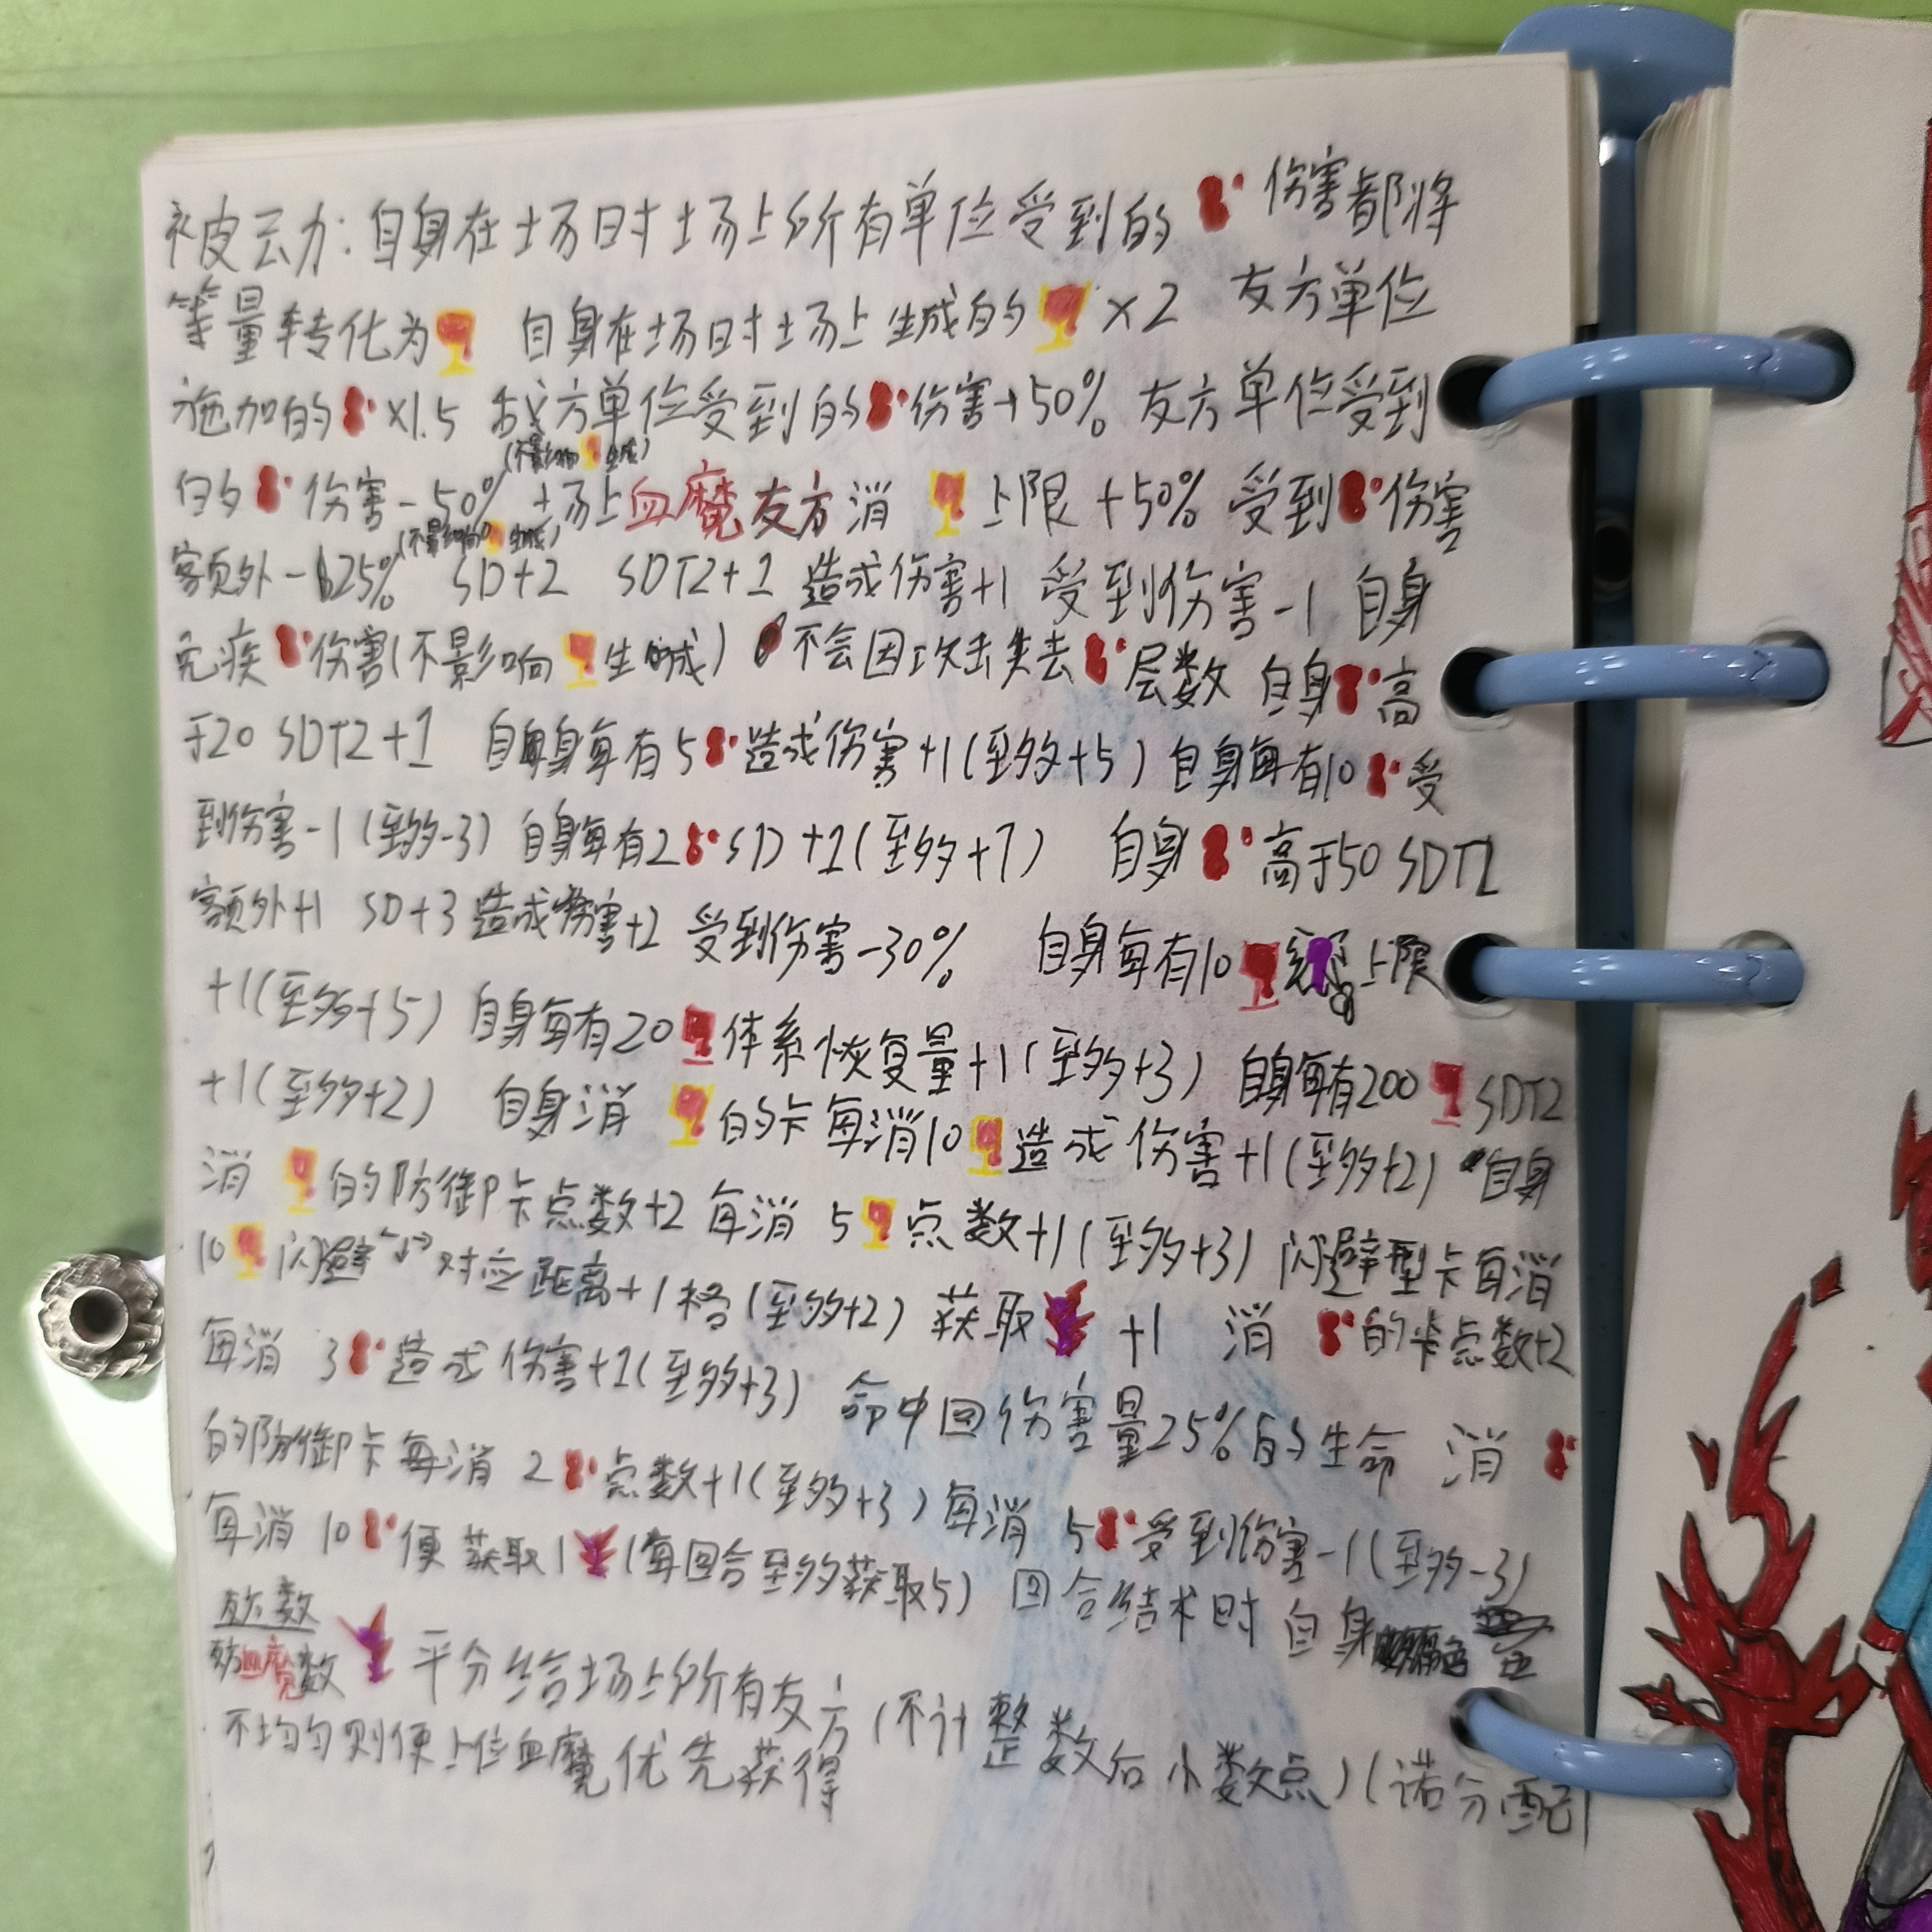 被动: 自身在场时场上所有单位受到的 伤害都将
等量转化为 自身在场时场上生成的 ×2 友方单位
施加的 ×1.5 敌方单位受到的 伤害+50% 友方单位受到
(不影响 生成)
的 伤害-50% 场上血魔友方消 上限+50% 受到 伤害
(不影响 生成)
额外-25% SD+2 SDT2+1 造成伤害+1 受到伤害-1 自身
免疾 伤害(不影响 生成) 不会因攻击失去 层数 自身 高
于20 SDT2+1 自身每有5 造成伤害+1(至多+5) 自身每有10 受
到伤害-1(至多-3) 自身每有2 SD+1(至多+7) 自身 高于50 SDT2
额外+1 SD+3 造成伤害+2 受到伤害-30% 自身每有10 上限
+1(至多+5) 自身每有20 体系恢复量+1(至多+3) 自身每有200 SDT2
+1(至多+2) 自身消 的卡每消10 造成伤害+1(至多+2) 自身
消 的防御卡点数+2 每消 5 点数+1(至多+3) 闪避型卡每消
10 闪避 对应距离+1格(至多+2) 获取 +1 消 的卡点数+2
每消 3 造成伤害+1(至多+3) 命中回伤害量25%的生命 消
的防御卡每消 2 点数+1(至多+3) 每消 5 受到伤害-1(至多-3)
每消 10 便获取1 (每回合至多获取5) 回合结术时 自身
友方数
血魔数 平分给场上所有友方(不计整数后小数点)(诺分配
不均匀则便上位血魔优先获得